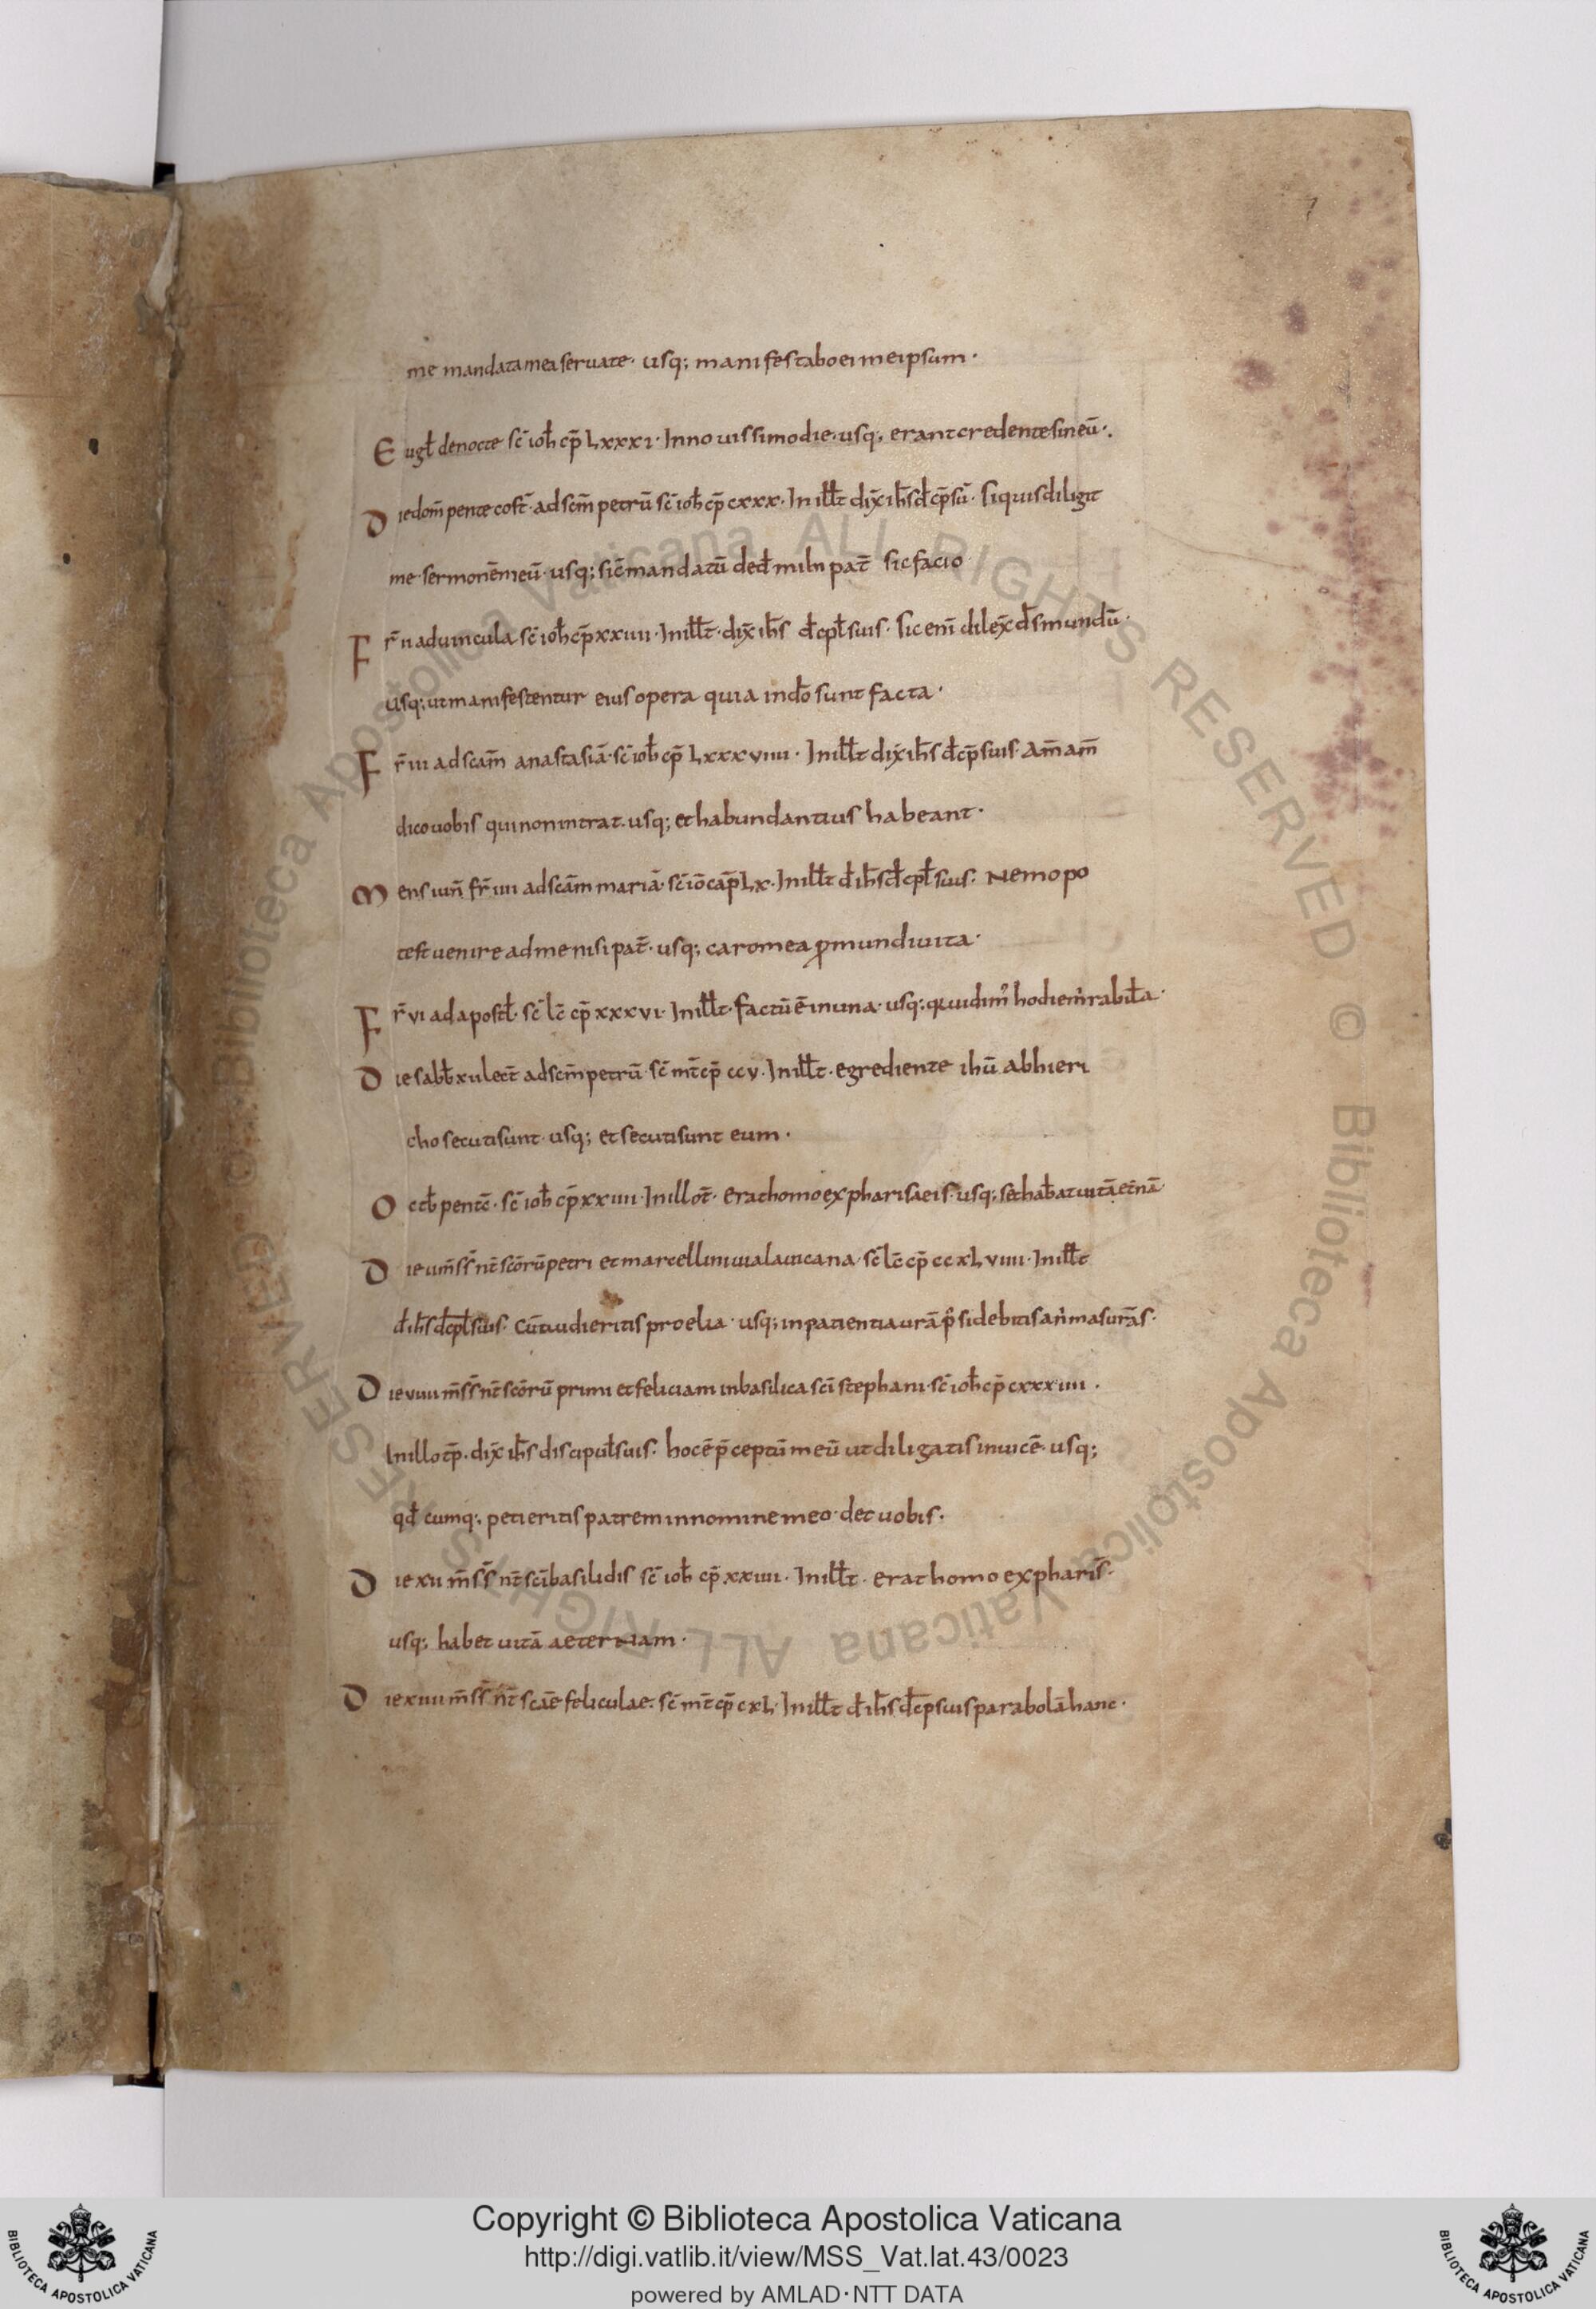 7
me mandata mea servate· usq; manifestabo ei me ipsum·
Eugł de nocte sc̄ ioħ cp̄ Lxxxi· In novissimo die· usq; erant credentes in eū·.
Die dom̄ pentecost̄· ad scm̄ petrū sc̄ ioħ cp̄ cxxx· In ilłt dix̄ ih̄s đcp̄sū· Siquis diligit
me sermonē meū· usq; sic̄ mandatū deđ mihi pat̄ sic facio
Fr̄ ii ad vincula sc̄ ioħ cp̄ xxiiii· In ilłt· dix̄ ih̄s đcpłsuis· Sic enī dilex̄ d̄s mundū·
usq; ut manifestentur eius opera quia in dō sunt facta·
Fr̄ iii ad scam̄ anastasiā· sc̄ ioħ cp̄ Lxxxviiii· In ilłt dix̄ ih̄s đcp̄suis· Am̄ am̄
dico vobis qui non intrat· usq; et habundantius habeant·
Mens iun̄ fr̄ iiii ad scām mariā· sc̄ iō cap̄ Lx· In ilłt đ ih̄s đcpłsuis· Nemo po
test venire ad me nisi pat̄· usq; caro mea ꝓ mundi vita·
Fr̄ vi ad apostł· sc̄ lc̄ cp̄ xxxvi· In ilłt· factū ē in una· usq; quia vidim' hodie mirabiła·
Die sabb̄ xii lect̄ ad scm̄ petrū· sc̄ mt̄ cp̄ ccv· In ilłt· egrediente ihū ab hieri
cho secuti sunt· usq; et secuti sunt eum·
Octb̄ pentc̄· sc̄ ioħ cp̄ xxiiii· In illot̄· erat homo ex pharisaeis· usq; set hab̄at vitā et̄nā
Die ii m̄ss̄ nt̄ scōrū petri et marcellini via lavicana· sc̄ lc̄ cp̄ ccxLviiii· In ilłt
đ ih̄s đcpłsuis· Cū audieritis proelia· usq; in patientia urā p̄sidebitis animas urās·
Die viiii m̄ss̄ nt̄ scōrū primi et feliciani in basilica scī stephani· sc̄ ioħ cp̄ cxxxiiii·
In illo tp̄· dix̄ ih̄s discipułsuis· hoc ē p̄ceptū meū ut diligatis invicē· usq;
qđ cumq; petieritis patrem in nomine meo· det vobis·
Die xii m̄ss̄ nt̄ scī basilidis sc̄ ioħ cp̄ xxiiii· In ilłt· erat homo ex pharis̄·
usq; habet vitā aeternam·
Die xiiii m̄ss̄ nt̄ scāe feliculae· sc̄ mt̄ cp̄ cxL· In ilłt đ ih̄s đcpsuis parabolā hanc·
Copyright © Biblioteca Apostolica Vaticana
http://digi.vatlib.it/view/MSS_Vat.lat.43/0023
powered by AMLAD·NTT DATA